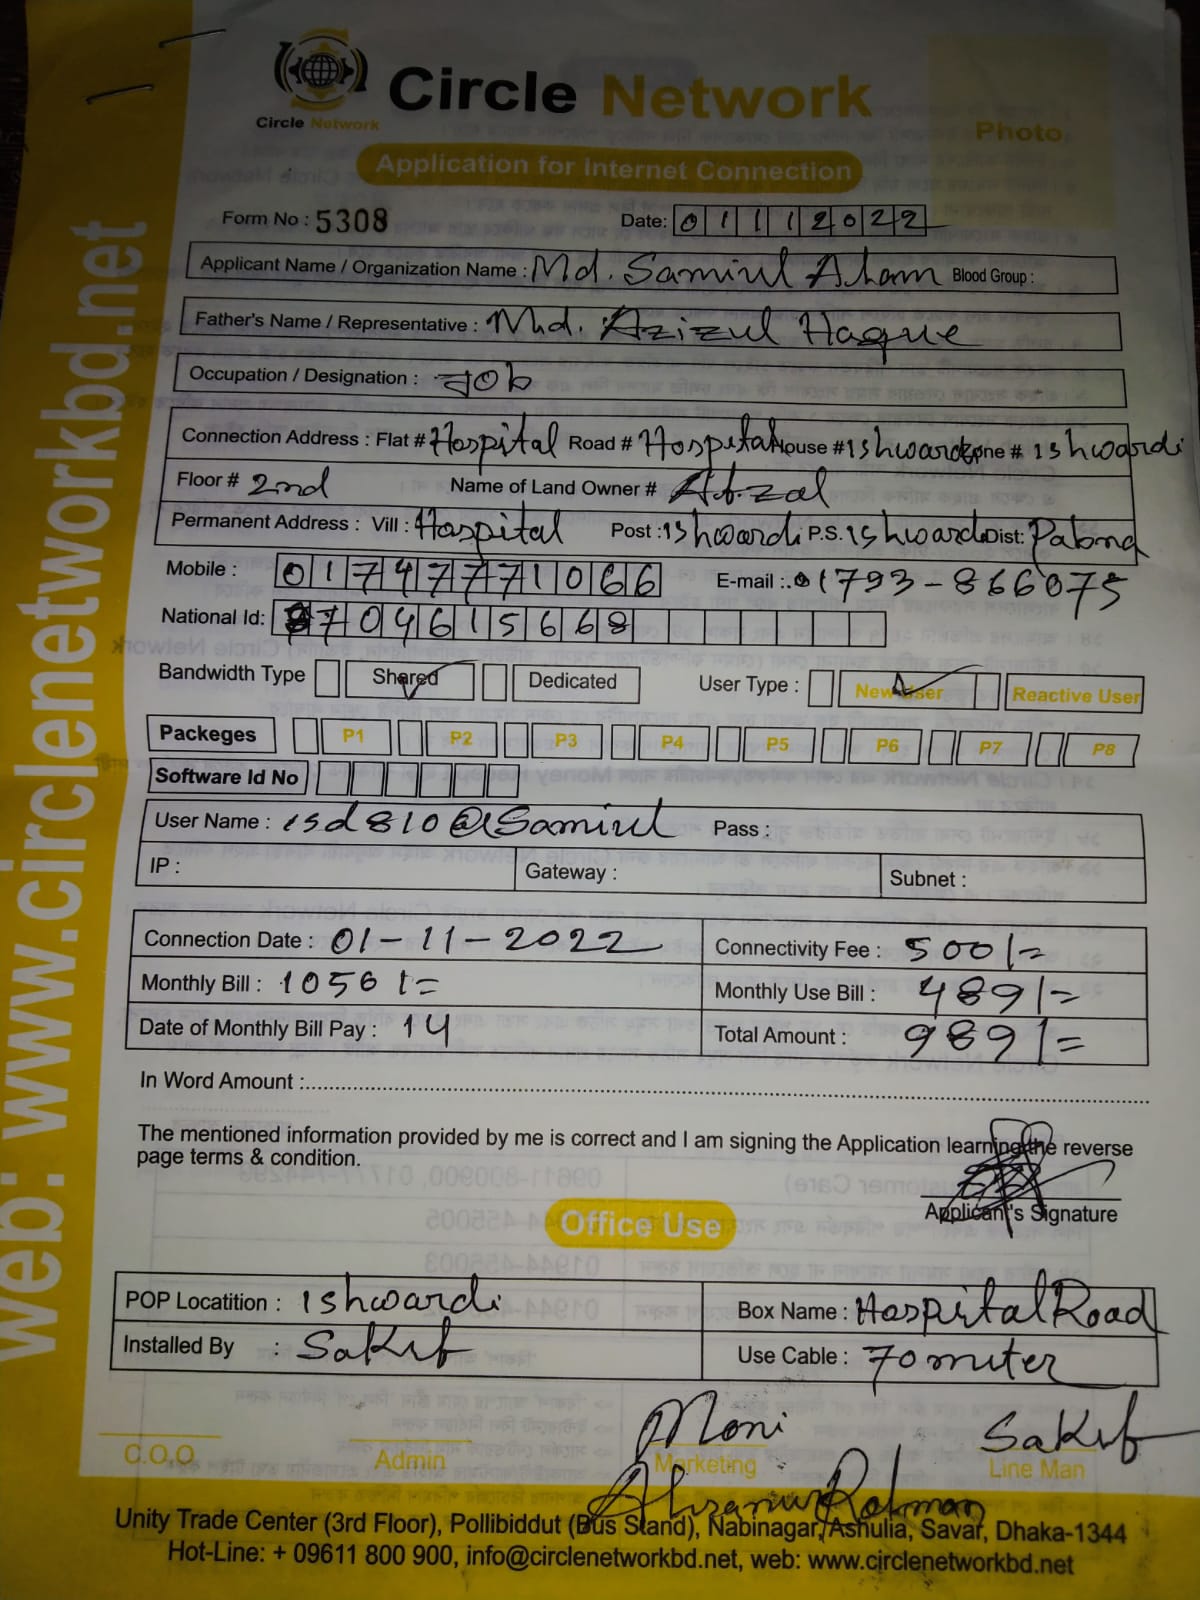 Circle Network
Circle Network
Photo
Application for Internet Connection
Form No : 5308 Date: 01112022
Applicant Name / Organization Name : Md. Samiul Aham Blood Group :
Father's Name / Representative : Md. Azizul Haque
Occupation / Designation : Job
Connection Address : Flat # Hospital Road # Hospital House # Ishwardi Zone # Ishwardi
Floor # 2nd Name of Land Owner # Afzal
Permanent Address : Vill : Hospital Post : Ishwardi P.S. Ishwardi Dist: Pabna
Mobile : 01747771066 E-mail : 01793-866075
National Id: 704615668
Bandwidth Type Shared Dedicated User Type : New User Reactive User
Packeges P1 P2 P3 P4 P5 P6 P7 P8
Software Id No
User Name : isd810@Samiul Pass :
IP : Gateway : Subnet :
Connection Date : 01-11-2022 Connectivity Fee : 500/=
Monthly Bill : 1056/= Monthly Use Bill : 489/=
Date of Monthly Bill Pay : 14 Total Amount : 989/=
In Word Amount :
The mentioned information provided by me is correct and I am signing the Application learning the reverse
page terms & condition.
Applicant's Signature
Office Use
POP Locatition : Ishwardi Box Name : Hospital Road
Installed By : Sakib Use Cable : 70 miter
Moni Sakib
C.O.O Admin Marketing Line Man
Ahsanur Rahman
Unity Trade Center (3rd Floor), Pollibiddut (Bus Stand), Nabinagar, Ashulia, Savar, Dhaka-1344
Hot-Line: + 09611 800 900, info@circlenetworkbd.net, web: www.circlenetworkbd.net
web: www.circlenetworkbd.net